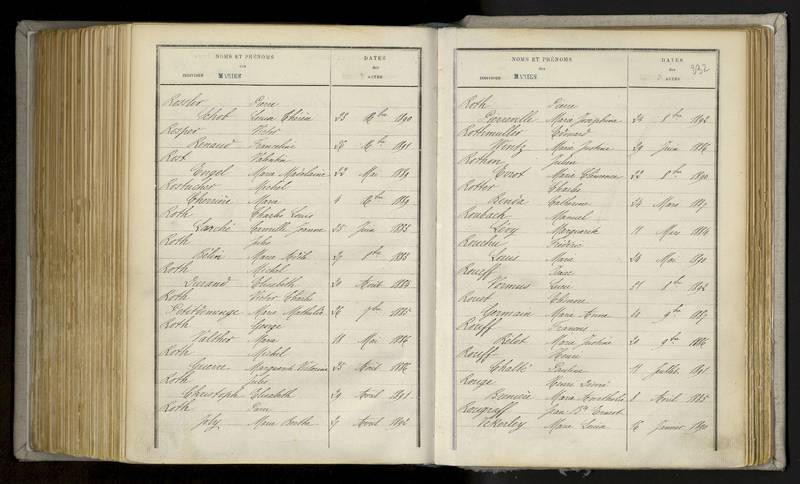 NOMS ET PRÉNOMS
des
INDIVIDUS MARIÉS
DATES
des
ACTES
Rossler Pierre
Schot Louise Thérèse 23 Xbre 1890
Rosper Victor
Renaud Francoline 26 Xbre 1891
Rost Valentin
Engel Marie Madeleine 22 Mai 1889
Rostucher Michel
Thonnière Marie 4 Xbre 1889
Roth Charles Louis
Larché Camille Jeanne 25 Juin 1883
Roth Jules
Belin Marie 27 8bre 1883
Roth Michel
Durand Elisabeth 20 Août 1884
Roth Victor Charles
Petitdemange Marie Mathilde 26 7bre 1885
Roth George
Walther Marie 18 Mai 1886
Roth Michel
Guerre Marguerite Victorine 25 Août 1886
Roth Jules
Christoph Elisabeth 29 Avril 1891
Roth
Joly Marie Berthe 21 Avril 1892
NOMS ET PRÉNOMS
des
INDIVIDUS MARIÉS
DATES
des
ACTES
332
Roth Pierre
Pierreville Marie Joséphine 24 8bre 1892
Rothmuller Edouard
Wentz Marie Justine 29 Juin 1886
Rothon Julien
Marie Clémence 22 8bre 1890
Rotter Charles
Catherine 24 Mars 1887
Roubach Manuel
Lévy Marguerite 11 Mars 1884
Frédéric
Louis Marie 24 Mai 1890
Roueff Isaac
Wormus Lucie 31 8bre 1892
Etienne
Germain Marie Anna 21 9bre 1887
Rouff François
Belot Marie Justine 20 9bre 1886
Rouff Henri
Chaldé Pauline 11 Juillet 1891
Rouge Henri Désiré
Marie 8 Avril 1885
Rougraff Jean Bte Ernest
Vekerley Marie Louise 16 Janvier 1890